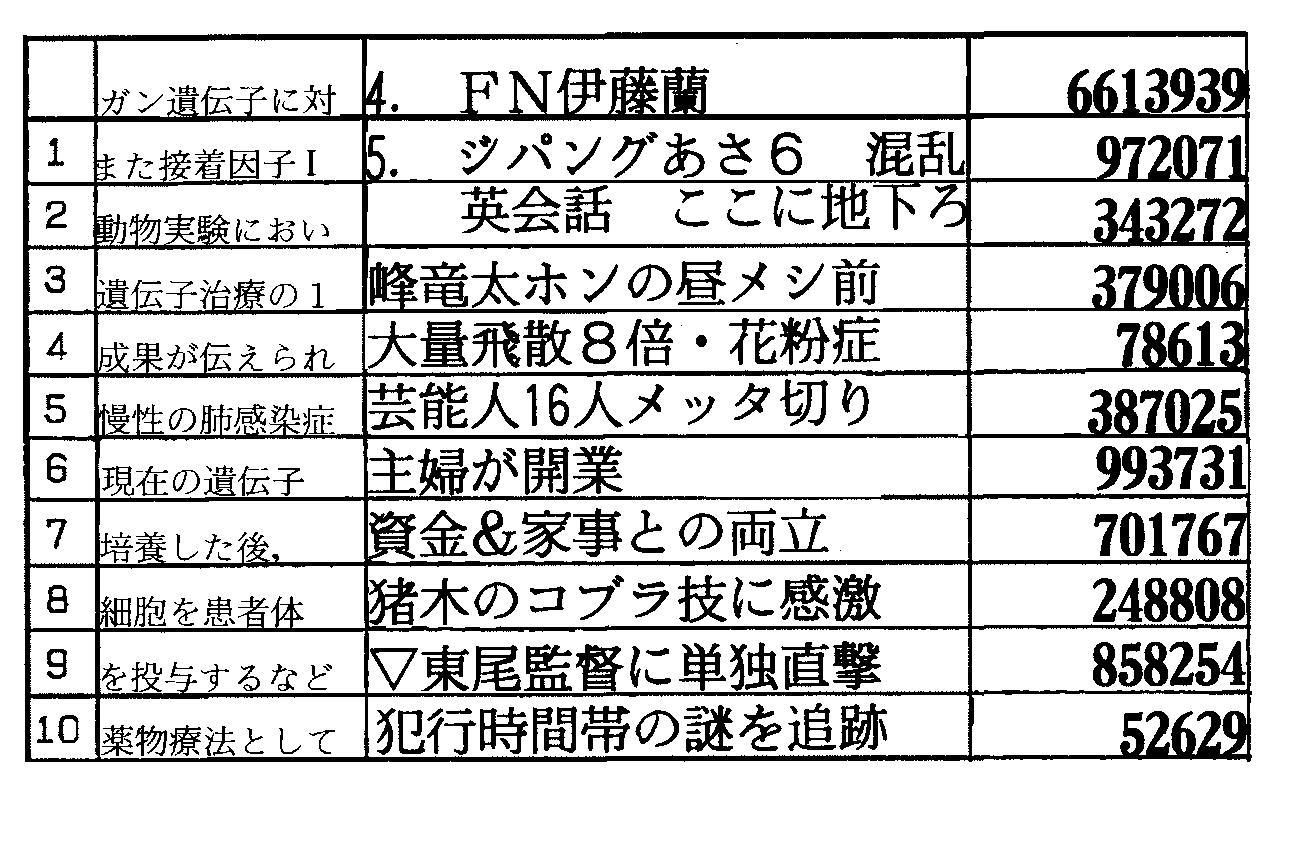 ガン遺伝子に対 4. FN伊藤蘭 6613939
1 また接着因子I 5. ジパングあさ6 混乱 972071
2 動物実験におい 英会話 ここに地下ろ 343272
3 遺伝子治療の1 峰竜太ホンの昼メシ前 379006
4 成果が伝えられ 大量飛散8倍・花粉症 78613
5 慢性の肺感染症 芸能人16人メッタ切り 387025
6 現在の遺伝子 主婦が開業 993731
7 培養した後, 資金&家事との両立 701767
8 細胞を患者体 猪木のコブラ技に感激 248808
9 を投与するなど ▽東尾監督に単独直撃 858254
10 薬物療法として 犯行時間帯の謎を追跡 52629